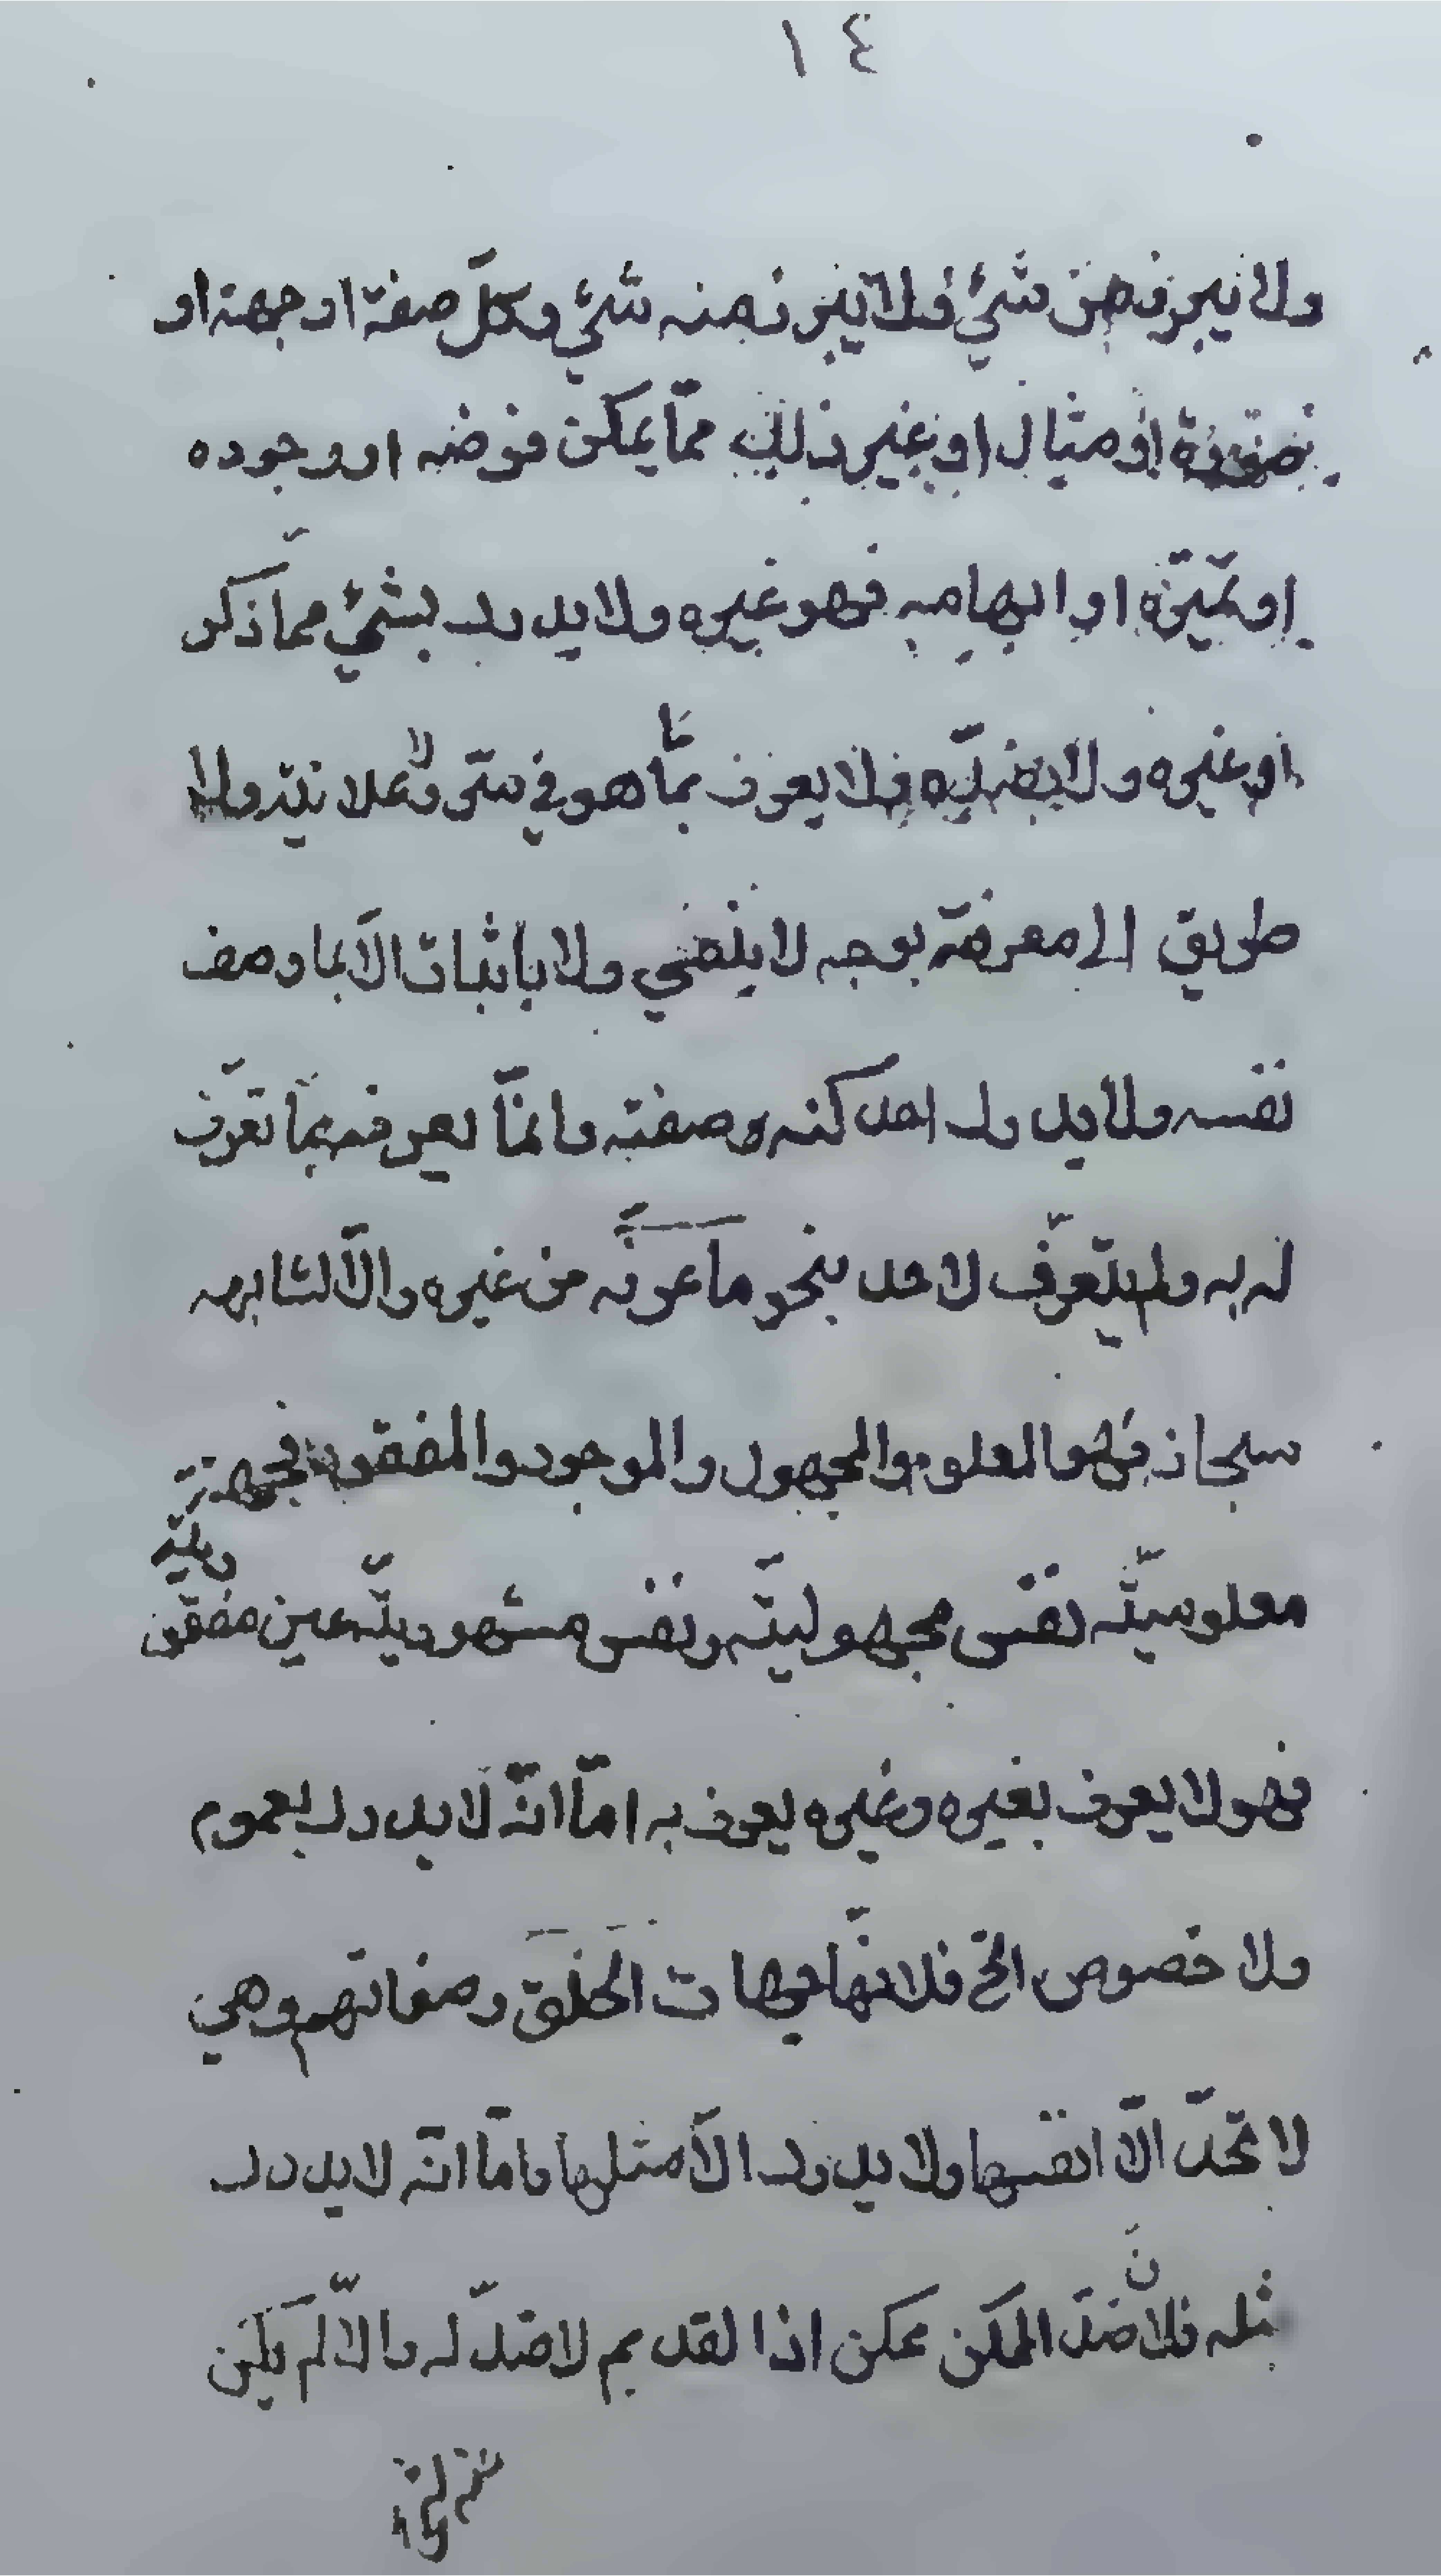 ١٤
ولا يبرز من شيء ولا يبرز منه شيء وكلّ صفة او جهة او
صورة او مثال او غير ذلك ممّا يمكن فرضه او وجوده
او تميّزه او ابهامه فهو غيره ولا يدرك بشيء مما ذكر
او غيره ولا بضدّه ولا يعرف بما هو في سرّ ولا علانية ولا
طريق الى معرفته بوجه لا بنفي ولا باثبات الّا بما وصف
نفسه ولا يدرك احد كنه صفته وانّما يعرف بما تعرّف
له به ولم يتعرّف لاحد بنحو ما عرفه من غيره والّا لشابهه
سبحانه فهو المعلوم والمجهول والموجود والمفقود فجهة
معلوميّته نفس مجهوليّته ونفس مشهوديّته عين مفقوديّته
فهو لا يعرف بغيره وغيره يعرف به امّا انّه لا يدرك بعموم
ولا خصوص الخ فلانّها جهات الخلق وصفاتهم وهي
لا تحدّ الّا انفسها ولا يدرك الّا مثلها وامّا انّه لا يدرك
بضده فلانّ ضدّ الممكن ممكن اذ القديم لا ضدّ له والّا لم يكن